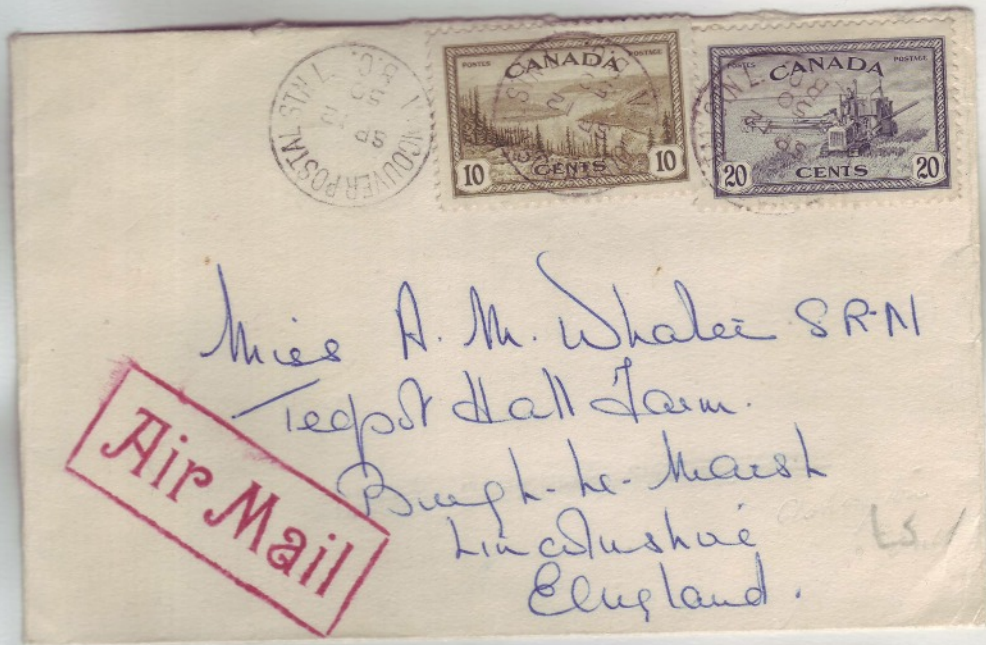 VANCOUVER POSTAL STN L. B.C.
POSTES CANADA POSTAGE
10 CENTS 10
POSTES CANADA POSTAGE
20 CENTS 20
Miss A. M. Whalei S R-N
Teapot Hall Farm.
Burgh-le-Marsh
Lincolnshire
England.
Air Mail